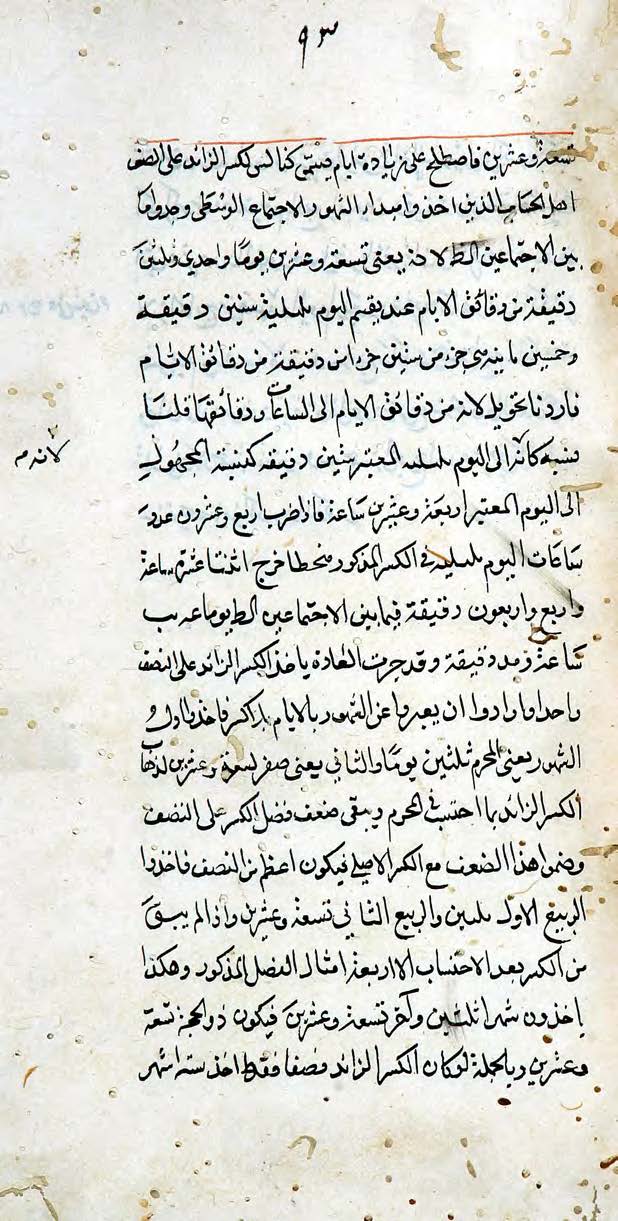 ٩٣
تسعة وعشرين فاصطلح على زيادة ايام يسمى كبائس لكسر الزائد على النصف
اهل الحساب الذين اخذوا مبدا الشهور الاجتماع الوسطى وجدوا ما
بين الاجتماعين الط لا ن يعنى تسعة وعشرين يوما واحدي وثلثين
دقيقة من دقائق الايام عند يقسم اليوم بليلية ستين دقيقة
وخمسين ثانية هى جزء من ستين جزء من دقيقة من دقائق الايام
فاردنا تحويل لانه من دقائق الايام الى الساعات ودقائقها قلنا
نسبة كانه الى اليوم بليلية المعتبر ستين دقيقه كنسبة المجهول
لانه مه
الى اليوم المعتبر اربعة وعشرين ساعة فاذا ضرب اربع وعشرون عدد
ساعات اليوم بليليه فى الكسر المذكور منحطا خرج اثنتا عشرة ساعة
واربع واربعون دقيقة فيما بين الاجتماعين الط يوما عد يب
ساعة و مد دقيقة وقد جرت العادة ياخذ الكسر الزائد على النصف
واحدا وارادوا ان يعبروا عن الشهور بالايام بلا كسر فاخذوا اول
الشهور يعنى المحرم ثلثين يوما والثانى يعنى صفر تسعة وعشرين لذهاب
الكسر الزائد بما احتسب فى المحرم ويبقى ضعف فضل الكسر على النصف
وضموا هذا الضعف مع الكسر الاصلى فيكون اعظم من النصف فاخذوا
الربيع الاول ثلثين والربيع الثانى تسعة وعشرين واذا لم يبق
من الكسر بعد الاحتساب الا اربعة امثال الفضل المذكور وهكذا
ياخذون شهرا ثلثين وآخر تسعة وعشرين فيكون ذو الحجة تسعة
وعشرين وبالجملة لو كان الكسر الزائد نصفا فقط اخذ ستة اشهر